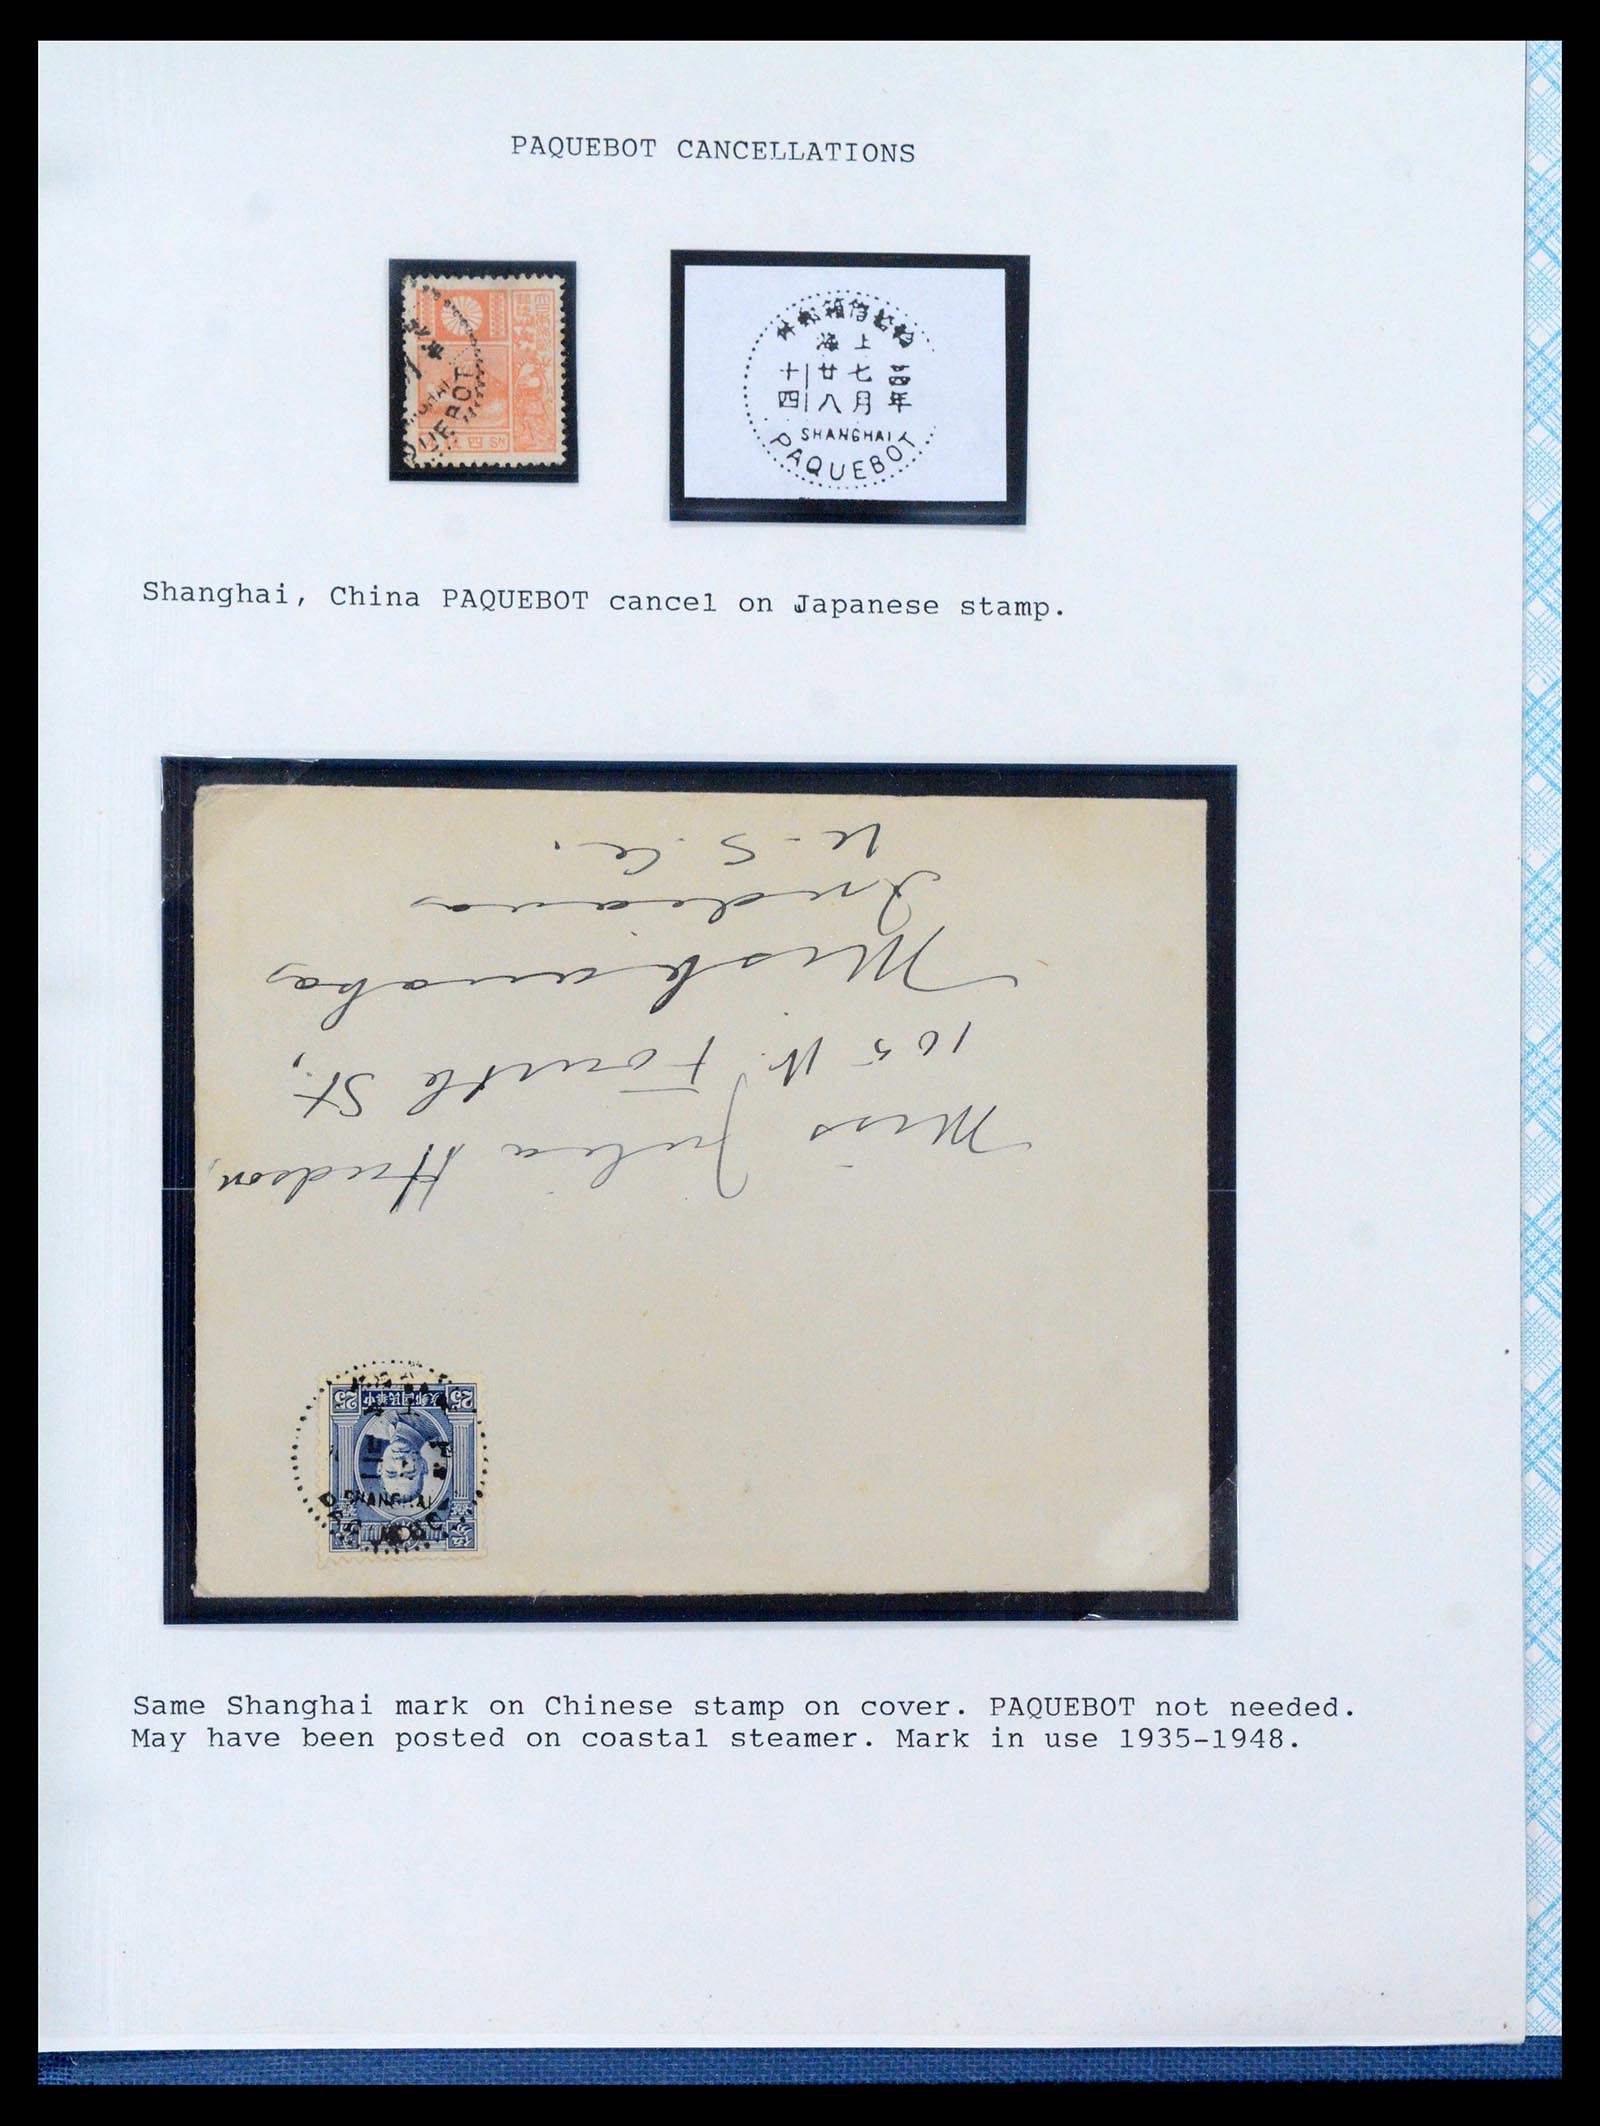 PAQUEBOT CANCELLATIONS
海 上
十 廿 七
四 八 月 年
SHANGHAI
PAQUEBOT
Shanghai, China PAQUEBOT cancel on Japanese stamp.
Miss Julia Hudson,
105 W. Fourth St,
Mishawaka
Indiana
U.S.A.
25 25
SHANGHAI
Same Shanghai mark on Chinese stamp on cover. PAQUEBOT not needed.
May have been posted on coastal steamer. Mark in use 1935-1948.